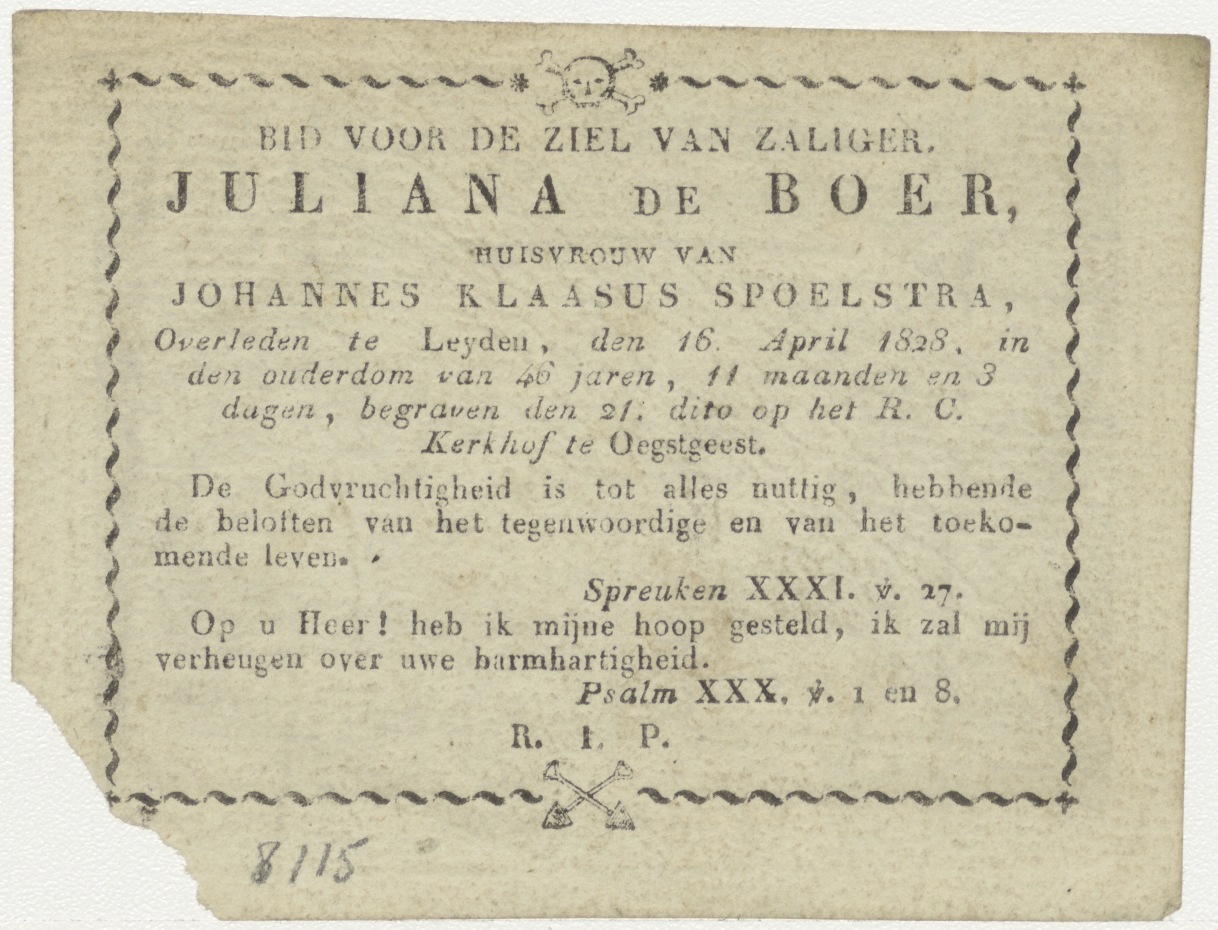 BID VOOR DE ZIEL VAN ZALIGER.
JULIANA DE BOER,
HUISVROUW VAN
JOHANNES KLAASUS SPOELSTRA,
Overleden te Leyden, den 16. April 1828, in
den ouderdom van 46 jaren, 11 maanden en 3
dagen, begraven den 21. dito op het R. C.
Kerkhof te Oegstgeest.
De Godvruchtigheid is tot alles nuttig, hebbende
de beloften van het tegenwoordige en van het toeko-
mende leven.
Spreuken XXXI. ℣. 27.
Op u Heer! heb ik mijne hoop gesteld, ik zal mij
verheugen over uwe barmhartigheid.
Psalm XXX. ℣. 1 en 8.
R. I. P.
8115